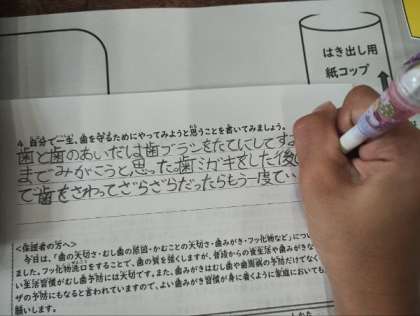 はき出し用
紙コップ
4．自分で一生、歯を守るためにやってみようと思うことを書いてみましょう。
歯と歯のあいだは歯ブラシをたてにしてすみ
までみがこうと思った。歯ミガキをした後
で歯をさわってざらざらだったらもう一度てい
＜保護者の方へ＞
今日は、「歯の大切さ・むし歯の原因・かむことの大切さ・歯みがき・フッ化物など」につい
ました。フッ化物洗口をすることで、歯の質を強くしますが、普段からの食生活や歯みがきな
い生活習慣がむし歯予防には大切です。また、歯みがきはむし歯や歯周病の予防だけでなく
ザの予防にもなると言われていますので、よい歯みがき習慣が身に着くように家庭においても
願いします。